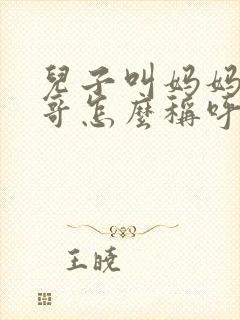 兒子叫妈妈
哥怎麼稱呼
王晓